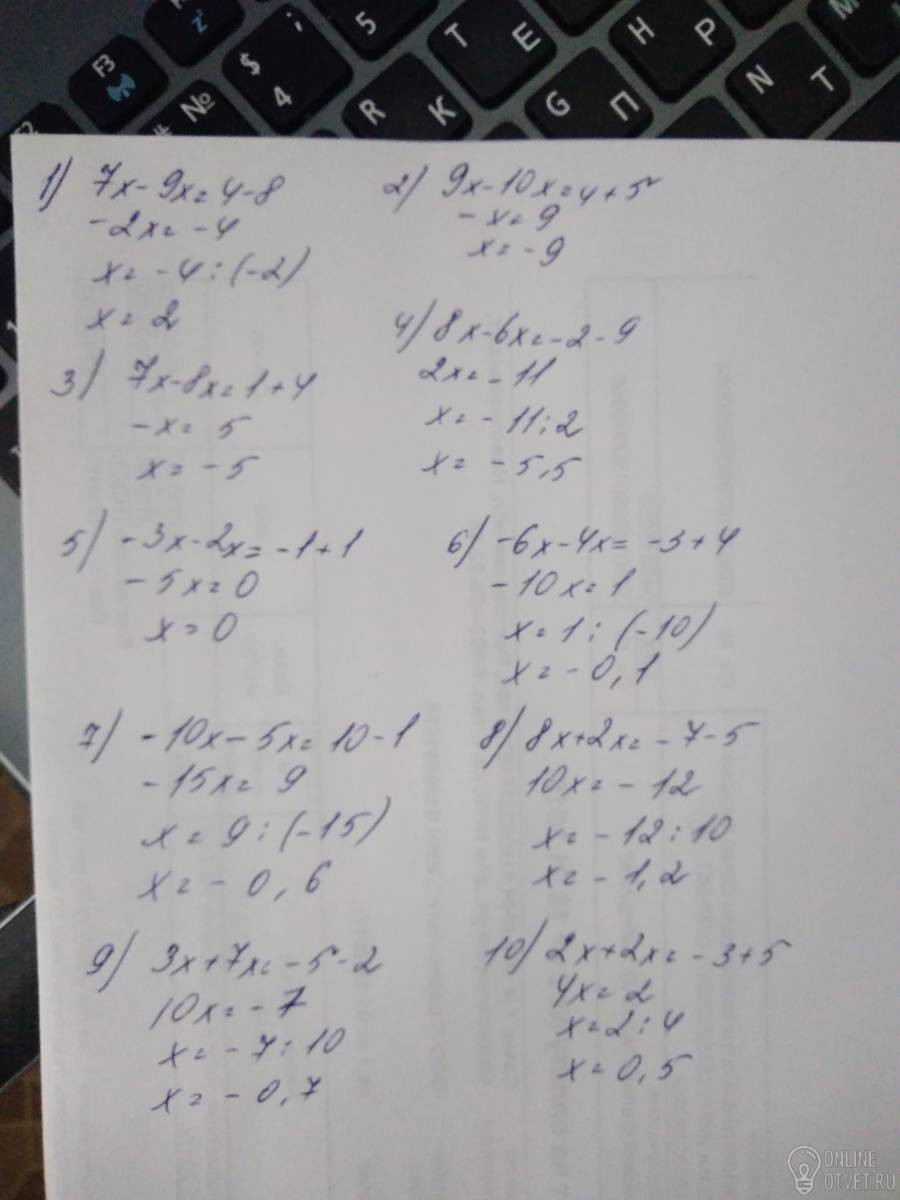 F3
Z
$
4
i
5
№
R
К
T
Е
G
П
Н
Р
N
Т
М
F2
#
1) 7x-9x=4-8
-2x=-4
x=-4:(-2)
x=2
2) 9x-10x=4+5
-x=9
x=-9
3) 7x-8x=1+4
-x=5
x=-5
4) 8x-6x=-2-9
2x=-11
x=-11:2
x=-5,5
5) -3x-2x=-1+1
-5x=0
x=0
6) -6x-4x=-3+4
-10x=1
x=1:(-10)
x=-0,1
7) -10x-5x=10-1
-15x=9
x=9:(-15)
x=-0,6
8) 8x+2x=-7-5
10x=-12
x=-12:10
x=-1,2
9) 3x+7x=-5-2
10x=-7
x=-7:10
x=-0,7
10) 2x+2x=-3+5
4x=2
x=2:4
x=0,5
ONLINE
OTVET.RU